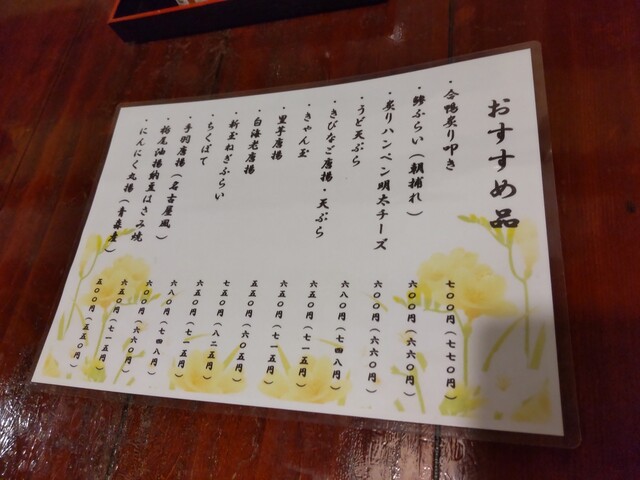 おすすめ品
・合鴨炙り叩き 七〇〇円(七七〇円)
・鯵ふらい(朝捕れ) 六〇〇円(六六〇円)
・炙りハンペン明太チーズ 六〇〇円(六六〇円)
・うど天ぷら 六八〇円(七四八円)
・きびなご唐揚・天ぷら 六五〇円(七一五円)
・きゃん玉 六五〇円(七一五円)
・里芋唐揚 五五〇円(六〇五円)
・白海老唐揚 七五〇円(八二五円)
・新玉ねぎふらい 六五〇円(七一五円)
・ちくぽて 六八〇円(七四八円)
・手羽唐揚(名古屋風) 六〇〇円(六六〇円)
・栃尾油揚納豆はさみ焼 六五〇円(七一五円)
・にんにく丸揚(青森産) 五〇〇円(五五〇円)